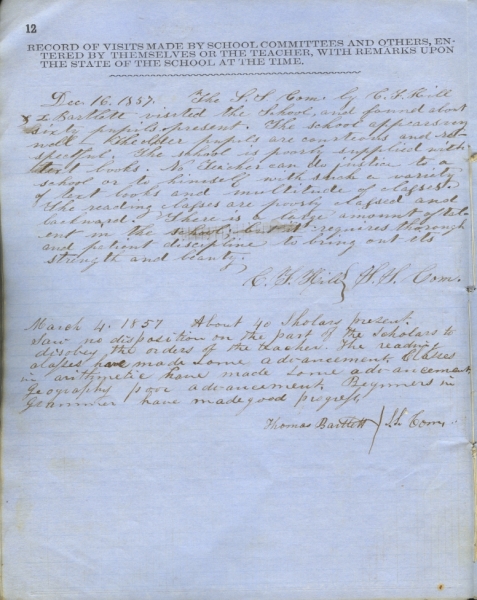 12
RECORD OF VISITS MADE BY SCHOOL COMMITTEES AND OTHERS, EN-
TERED BY THEMSELVES OR THE TEACHER, WITH REMARKS UPON
THE STATE OF THE SCHOOL AT THE TIME.
Dec 16. 1857. The S. S. Com. by C. F. Hill
& Bartlett visited the School, and found about
sixty pupils present. The school appears in
well - The older pupils are courteous and res-
pectful. The school is poorly supplied with
text books. No teacher can do justice to a
school or to himself with such a variety
of text books and multitude of classes.
The reading classes are poorly classed and
backward. There is a large amount of tal-
ent in the school, but it requires thorough
and patient discipline to bring out its
strength and beauty.
C. F. Hill } S. S. Com.
March 4. 1857 About 40 Sholars present.
Saw no disposition on the part of the Scholars to
disobey the orders of the teacher. The reading
classes have made some advancement. Classes
in arithmetic have made some advancement
Geography poor advancement Beginners in
Grammer have made good progress
Thomas Bartlett } S.S. Com.